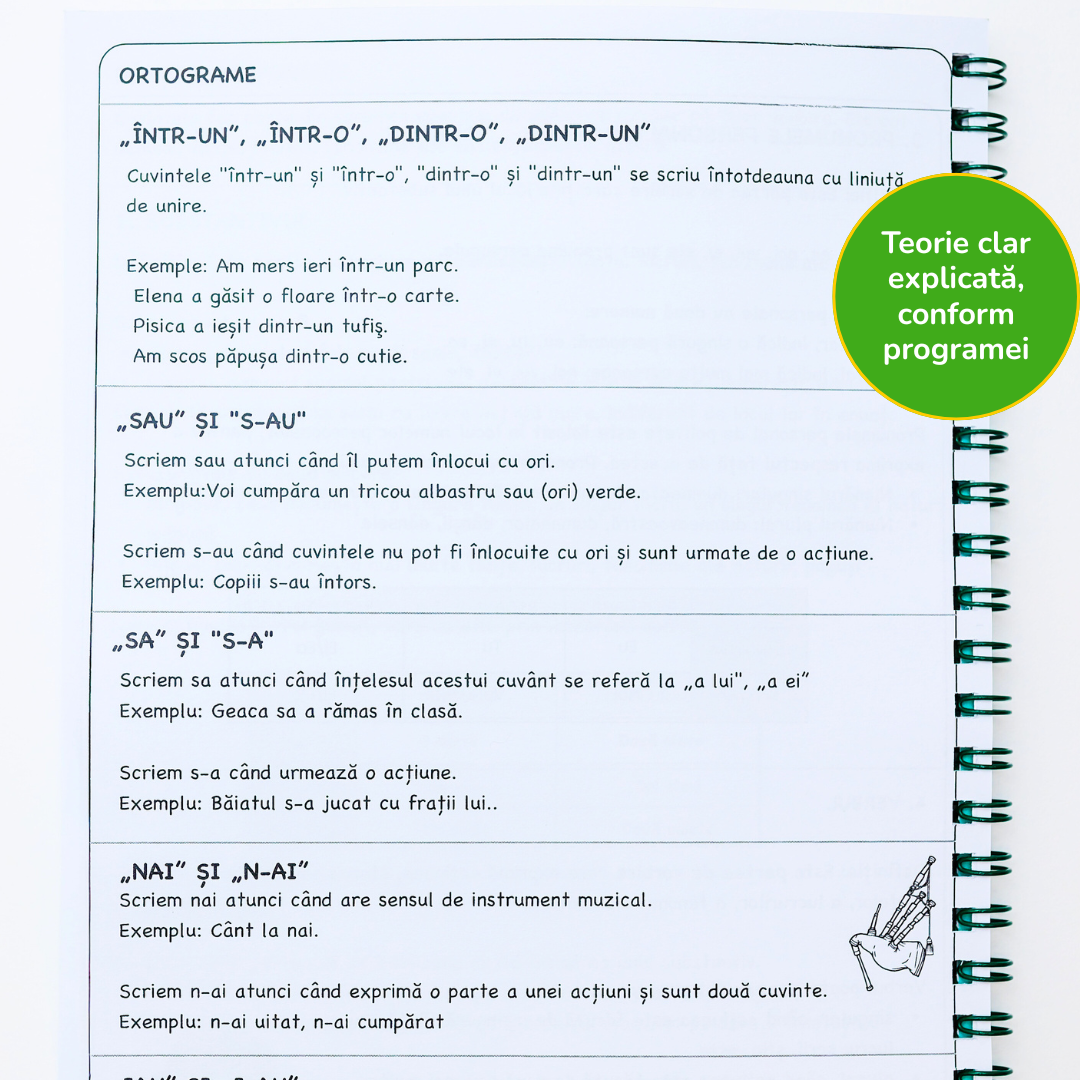 ORTOGRAME
„ÎNTR-UN”, „ÎNTR-O”, „DINTR-O”, „DINTR-UN”
Cuvintele "într-un" și "într-o", "dintr-o" și "dintr-un" se scriu întotdeauna cu liniuță
de unire.
Exemple: Am mers ieri într-un parc.
Elena a găsit o floare într-o carte.
Pisica a ieșit dintr-un tufiş.
Am scos păpușa dintr-o cutie.
Teorie clar
explicată,
conform
programei
„SAU” ȘI "S-AU"
Scriem sau atunci când îl putem înlocui cu ori.
Exemplu:Voi cumpăra un tricou albastru sau (ori) verde.
Scriem s-au când cuvintele nu pot fi înlocuite cu ori și sunt urmate de o acțiune.
Exemplu: Copiii s-au întors.
„SA” ȘI "S-A"
Scriem sa atunci când înțelesul acestui cuvânt se referă la „a lui", „a ei”
Exemplu: Geaca sa a rămas în clasă.
Scriem s-a când urmează o acțiune.
Exemplu: Băiatul s-a jucat cu frații lui..
„NAI” ȘI „N-AI”
Scriem nai atunci când are sensul de instrument muzical.
Exemplu: Cânt la nai.
Scriem n-ai atunci când exprimă o parte a unei acțiuni și sunt două cuvinte.
Exemplu: n-ai uitat, n-ai cumpărat